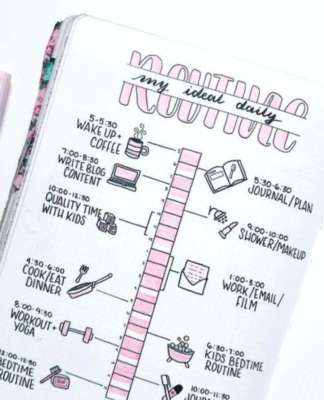 ROUTINE
my ideal daily
5-5:30
WAKE UP +
COFFEE
5:30-6:30
JOURNAL/PLAN
7:00-8:30
WRITE BLOG
CONTENT
9:00-10:00
SHOWER/MAKEUP
10:00-12:30
QUALITY TIME
WITH KIDS
WORK/EMAIL/
FILM
4:30-6:00
COOK/EAT
DINNER
6:30-7:00
KIDS BEDTIME
ROUTINE
WORKOUT +
YOGA
BEDTIME
ROUTINE